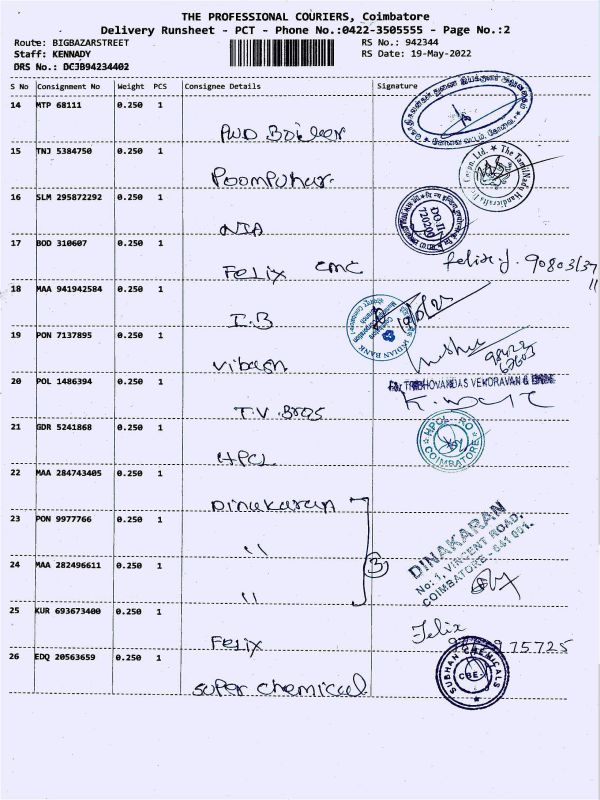 THE PROFESSIONAL COURIERS, Coimbatore
Delivery Runsheet - PCT - Phone No.:0422-3505555 - Page No.:2
Route: BIGBAZARSTREET RS No.: 942344
Staff: KENNADY RS Date: 19-May-2022
DRS No.: DCJB94234402
S No Consignment No Weight PCS Consignee Details Signature
14 MTP 68111 0.250 1
PWD Boiler
15 TNJ 5384750 0.250 1
Poompuhar
16 SLM 295872292 0.250 1
NIA
17 BOD 310607 0.250 1
Felix CMC felix.J.
18 MAA 941942584 0.250 1
I.B
INDIAN BANK
19 PON 7137895 0.250 1
Vibash
20 POL 1486394 0.250 1
T.V. Bros
21 GDR 5241868 0.250 1
HPCL
HPCL - RO
COIMBATORE
22 MAA 284743405 0.250 1
Dinakaran
23 PON 9977766 0.250 1
"
24 MAA 282496611 0.250 1
"
3
DINAKARAN
No: 1, VINCENT ROAD,
COIMBATORE - 641 001.
25 KUR 693673400 0.250 1
Felix Felix
26 EDQ 20563659 0.250 1
super chemical
SUBHAN CHEMICALS
CBE-1